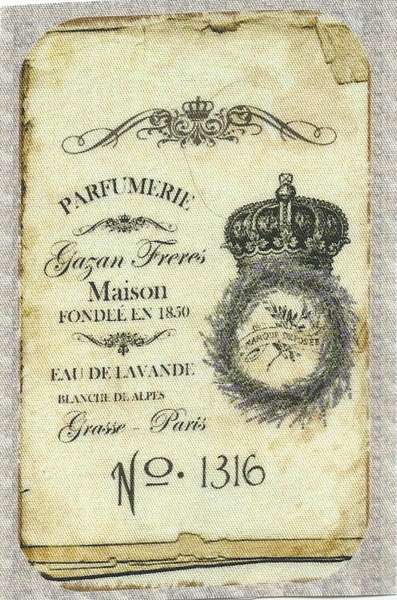 PARFUMERIE
Gazan Freres
Maison
FONDLÉE EN 1850
EAU DE LAVANDE
BLANCHE DE ALPES
Grasse - Paris
MARQUE DEPOSÉE
No. 1316